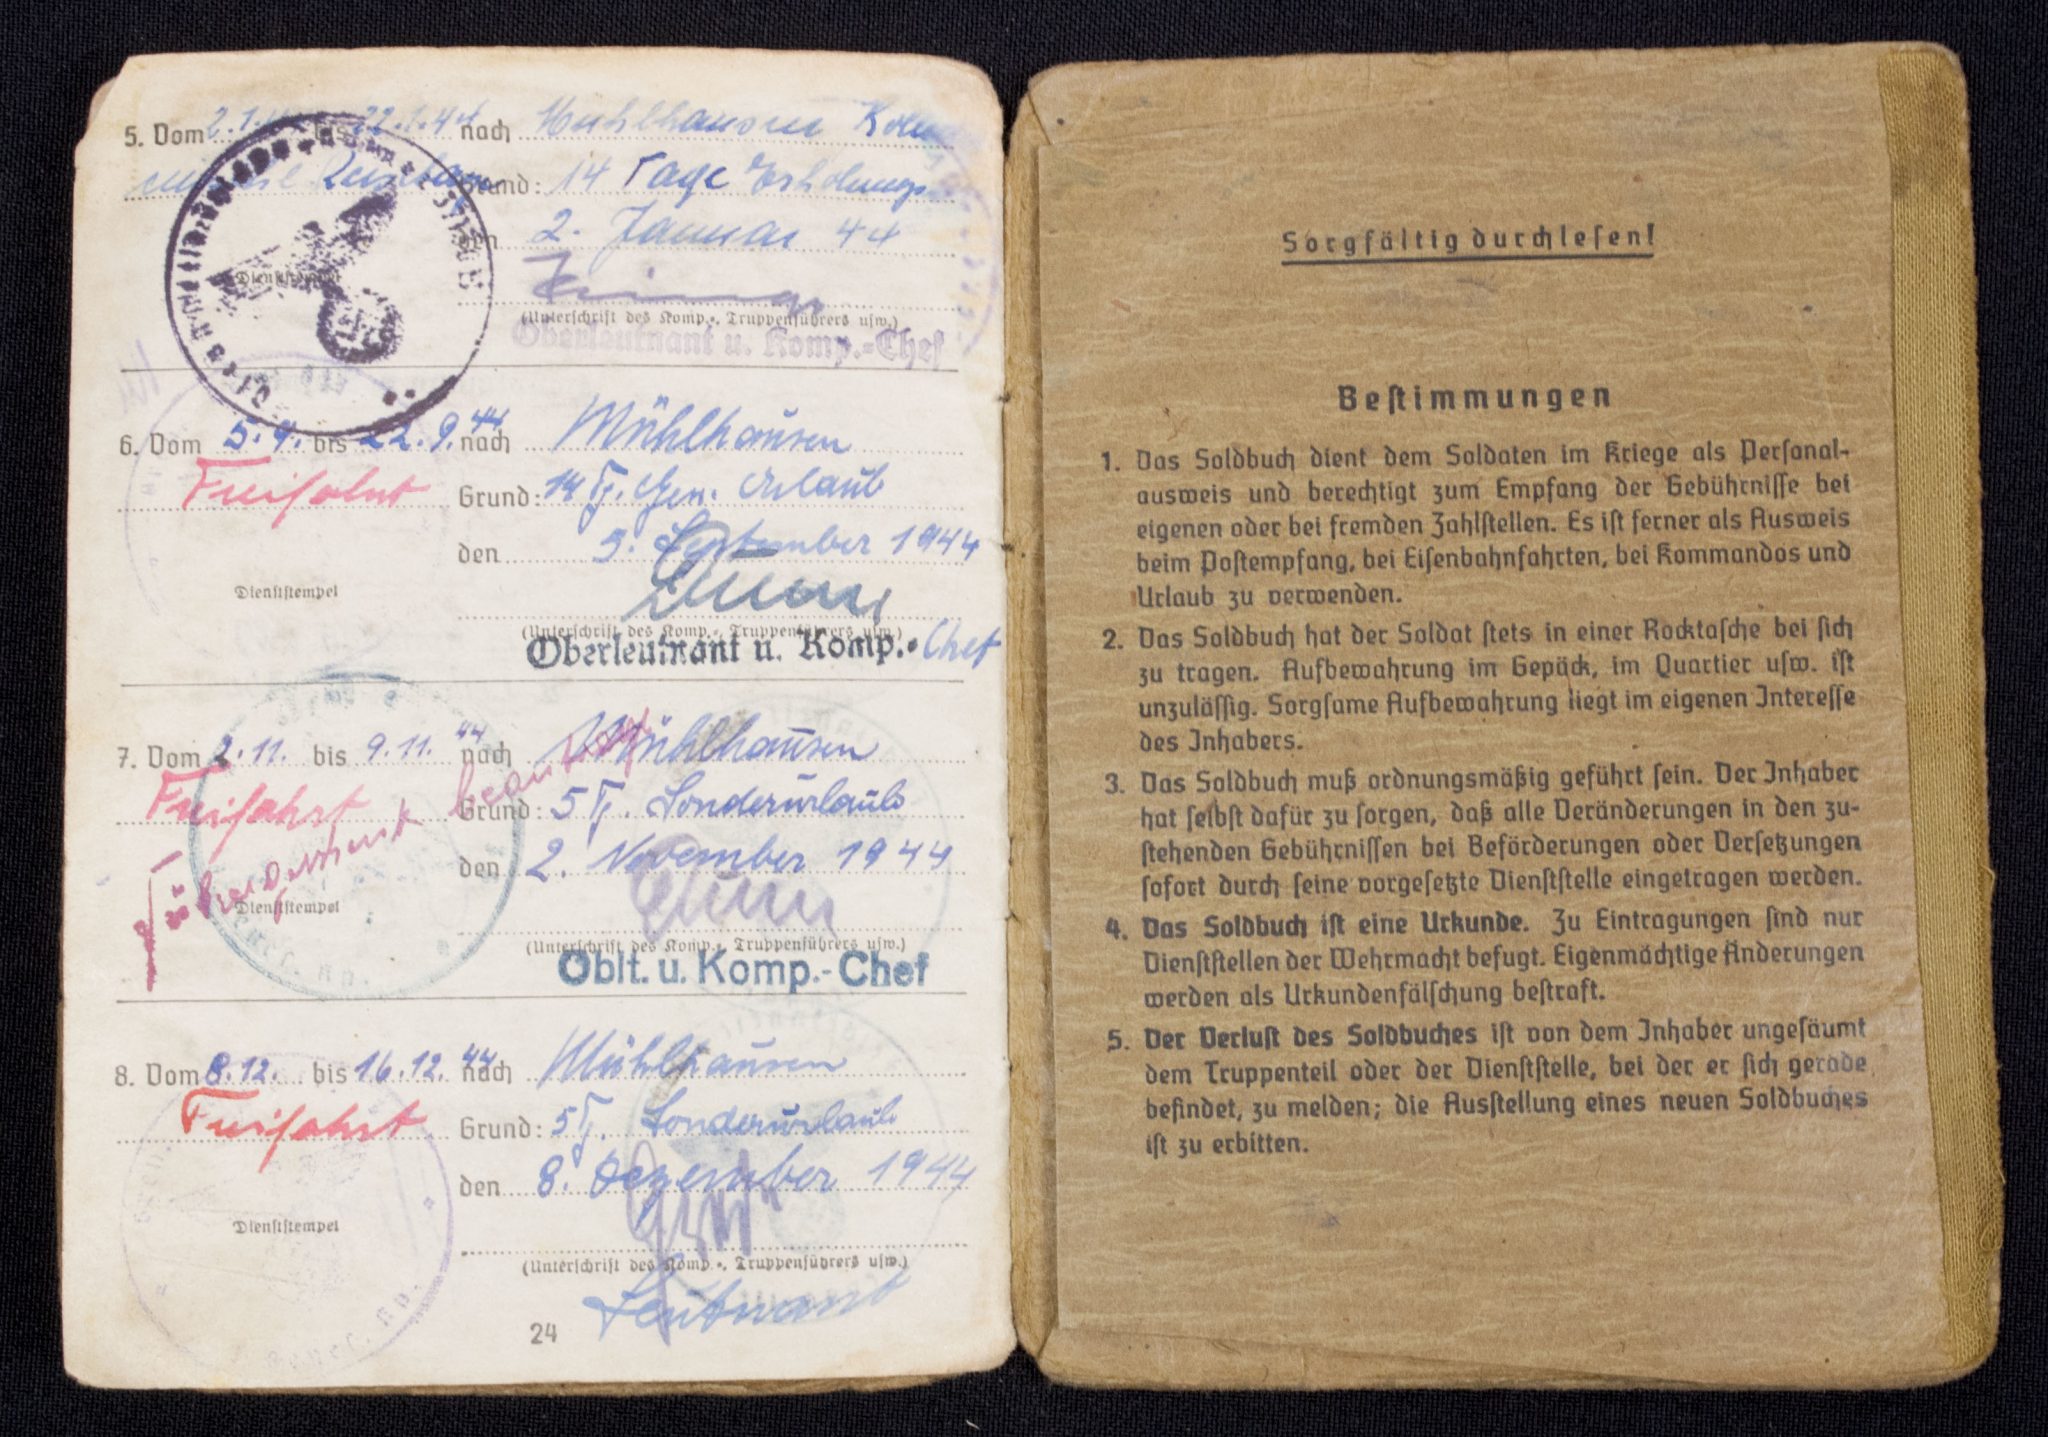 5. Vom 2.1. bis 22.1.44 nach Mühlhausen
Grund: 14 Tage Erholungs
den 2. Januar 44
Dienststempel
(Unterschrift des Komp.-, Truppenführers usw.)
Oberleutnant u. Komp.-Chef
6. Vom 5.9. bis 22.9.44 nach Mühlhausen
Freifahrt Grund: 14 T. Gen. Urlaub
den 5. September 1944
Dienststempel
(Unterschrift des Komp.-, Truppenführers usw.)
Oberleutnant u. Komp.-Chef
7. Vom 2.11. bis 9.11.44 nach Mühlhausen
Freifahrt Grund: 5 T. Sonderurlaub
den 2. November 1944
Dienststempel
(Unterschrift des Komp.-, Truppenführers usw.)
Oblt. u. Komp.-Chef
8. Vom 8.12. bis 16.12.44 nach Mühlhausen
Freifahrt Grund: 5 T. Sonderurlaub
den 8. Dezember 1944
Dienststempel
(Unterschrift des Komp.-, Truppenführers usw.)
Leutnant
24
Sorgfältig durchlesen!
Bestimmungen
1. Das Soldbuch dient dem Soldaten im Kriege als Personal-
ausweis und berechtigt zum Empfang der Gebührnisse bei
eigenen oder bei fremden Zahlstellen. Es ist ferner als Ausweis
beim Postempfang, bei Eisenbahnfahrten, bei Kommandos und
Urlaub zu verwenden.
2. Das Soldbuch hat der Soldat stets in einer Rocktasche bei sich
zu tragen. Aufbewahrung im Gepäck, im Quartier usw. ist
unzulässig. Sorgsame Aufbewahrung liegt im eigenen Interesse
des Inhabers.
3. Das Soldbuch muß ordnungsmäßig geführt sein. Der Inhaber
hat selbst dafür zu sorgen, daß alle Veränderungen in den zu-
stehenden Gebührnissen bei Beförderungen oder Versetzungen
sofort durch seine vorgesetzte Dienststelle eingetragen werden.
4. Das Soldbuch ist eine Urkunde. Zu Eintragungen sind nur
Dienststellen der Wehrmacht befugt. Eigenmächtige Änderungen
werden als Urkundenfälschung bestraft.
5. Der Verlust des Soldbuches ist von dem Inhaber ungesäumt
dem Truppenteil oder der Dienststelle, bei der er sich gerade
befindet, zu melden; die Ausstellung eines neuen Soldbuches
ist zu erbitten.